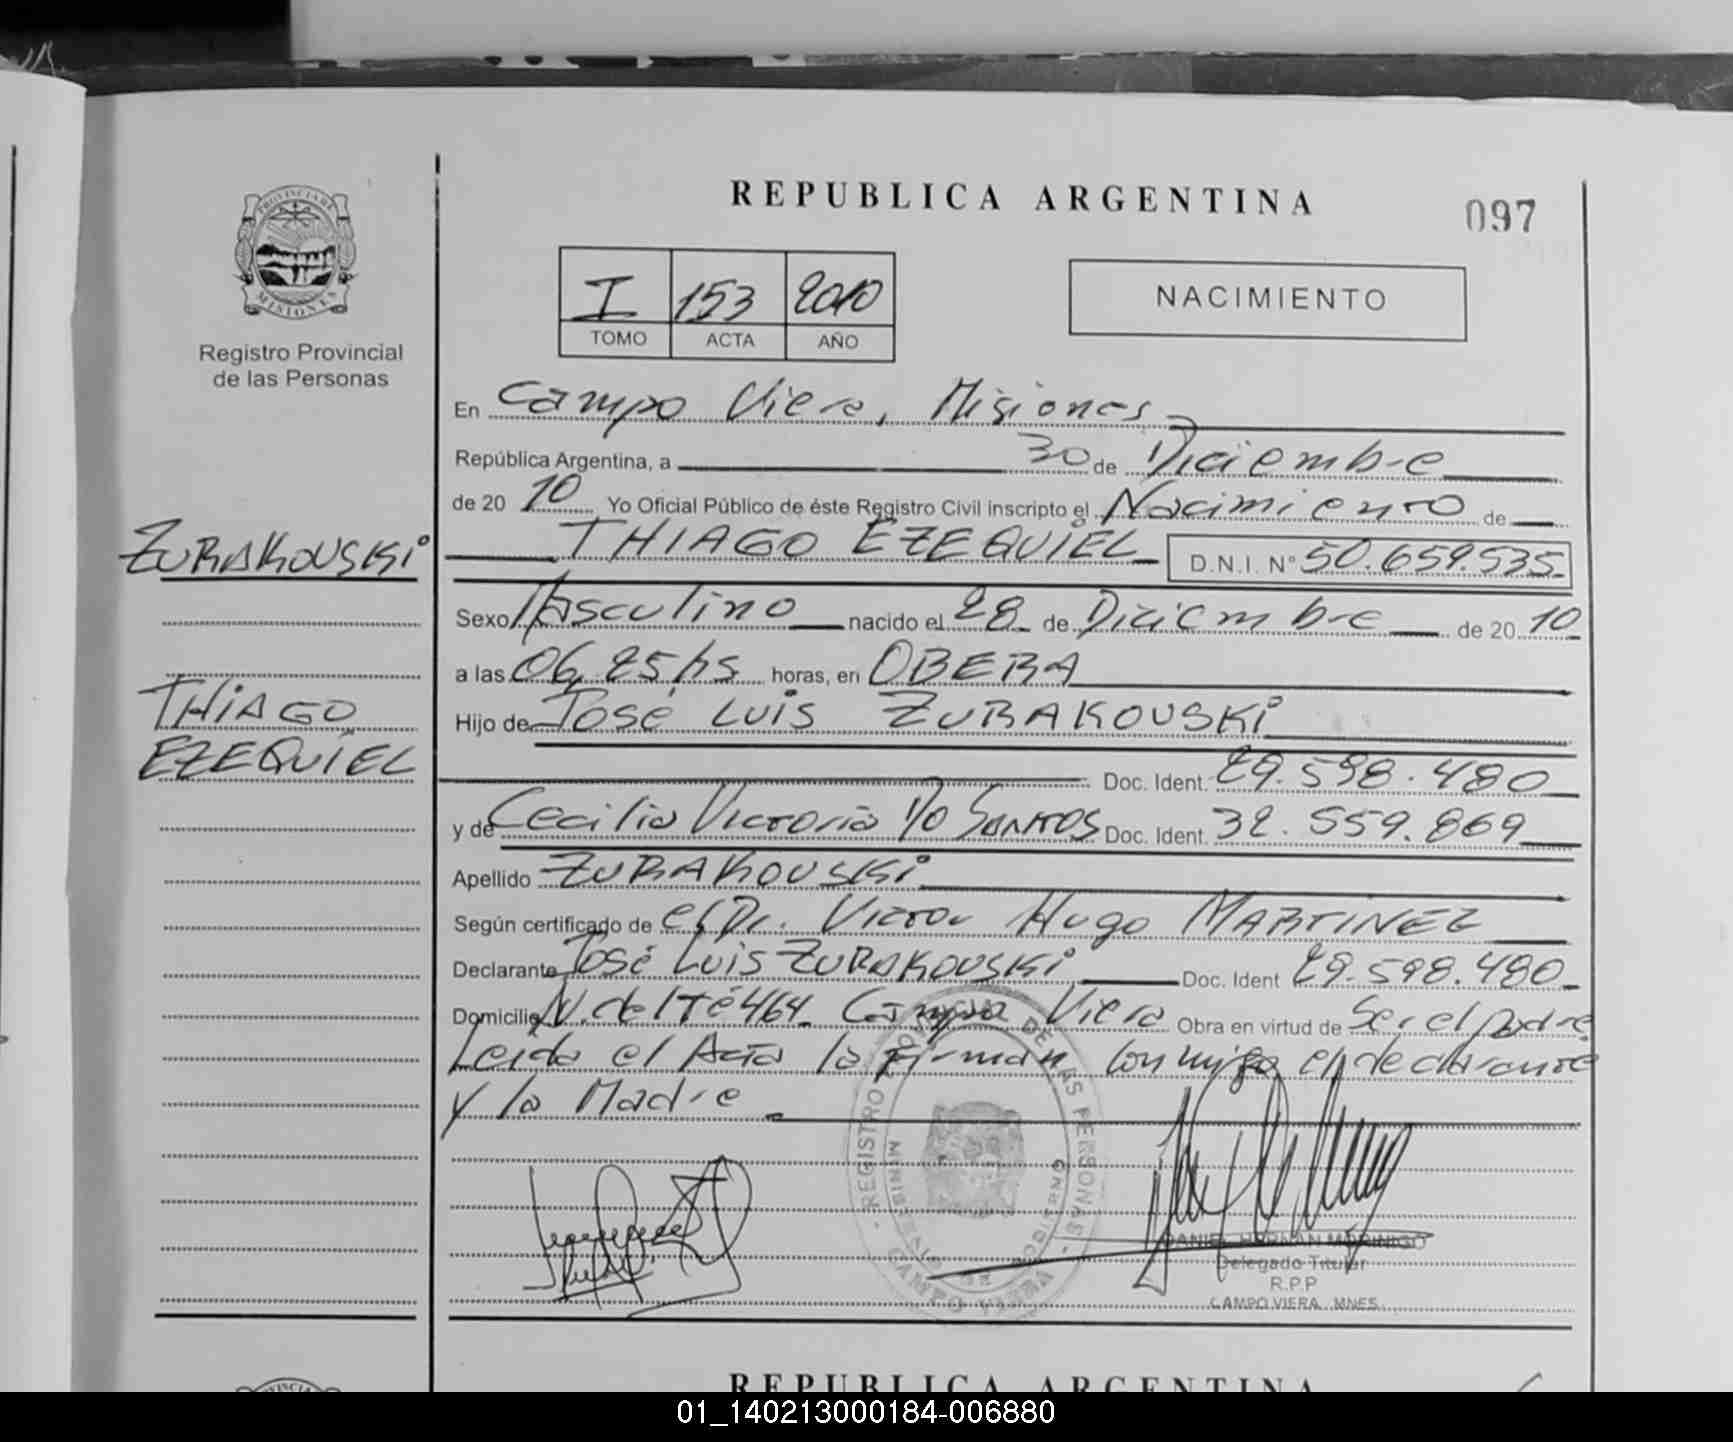 REPUBLICA ARGENTINA
097
PROVINCIA DE
MISIONES
Registro Provincial
de las Personas
I 153 2010
TOMO ACTA AÑO
NACIMIENTO
En Campo Viera, Misiones
República Argentina, a 30 de Diciembre
de 20 10 Yo Oficial Público de éste Registro Civil inscripto el Nacimiento de
THIAGO EZEQUIEL D.N.I. N° 50.659.535
Sexo Masculino nacido el 28 de Diciembre de 20 10
a las 06,25 hs horas, en OBERA
Hijo de José Luis ZURAKOUSKi
Doc. Ident. 29.598.480
y de Cecilia Victoria Do Santos Doc. Ident. 32.559.869
Apellido ZURAKOUSKi
Según certificado de el Dr. Victor Hugo MARTINEZ
Declarante José Luis ZURAKOUSKi Doc. Ident 29.598.480
Domicilio N. del Té 464 Campo Viera Obra en virtud de Ser el padre
Leida el Acta la firman conmigo el declarante
y la Madre
ZURAKOUSKi
THiAGO
EZEQUIEL
REGISTRO PROVINCIAL DE LAS PERSONAS
MINISTERIO DE GOBIERNO
CAMPO VIERA
DANIEL HERNAN MORINIGO
Delegado Titular
R.P.P
CAMPO VIERA MNES.
REPUBLICA ARGENTINA
01_140213000184-006880